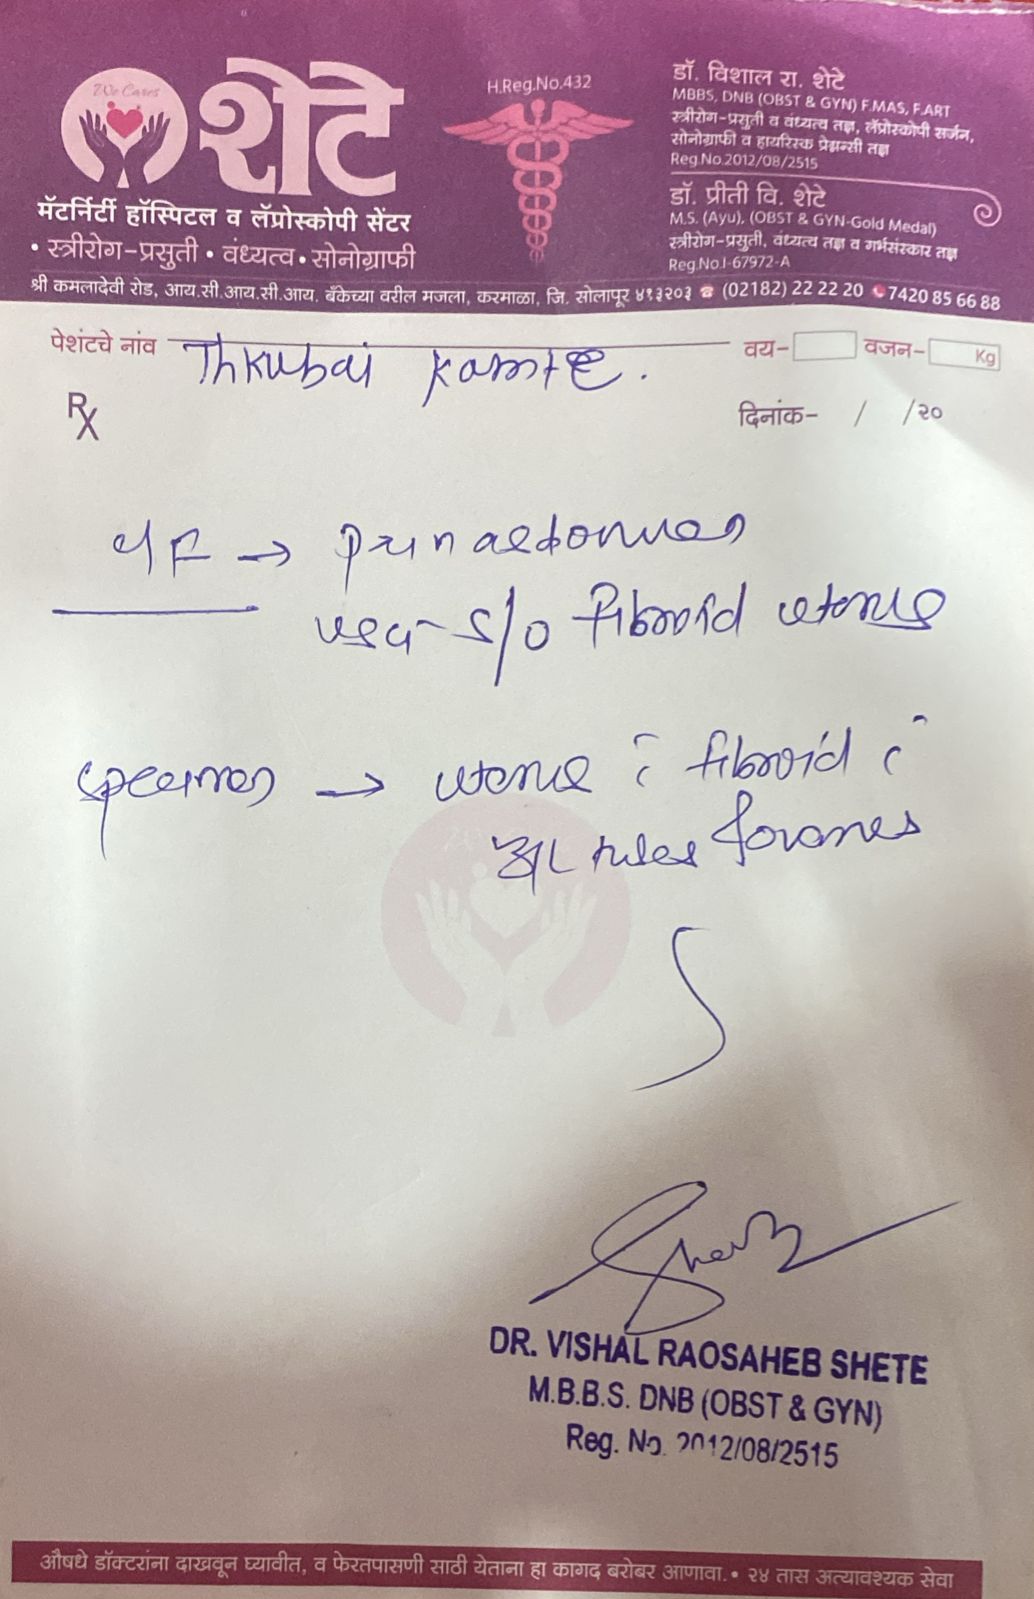 We Cares
शेटे
मॅटर्निटी हॉस्पिटल व लॅप्रोस्कोपी सेंटर
• स्त्रीरोग-प्रसुती • वंध्यत्व • सोनोग्राफी
H.Reg.No.432
डॉ. विशाल रा. शेटे
MBBS, DNB (OBST & GYN) F.MAS, F.ART
स्त्रीरोग-प्रसुती व वंध्यत्व तज्ञ, लॅप्रोस्कोपी सर्जन,
सोनोग्राफी व हायरिस्क प्रेग्नन्सी तज्ञ
Reg.No.2012/08/2515
डॉ. प्रीती वि. शेटे
M.S. (Ayu). (OBST & GYN-Gold Medal)
स्त्रीरोग-प्रसुती, वंध्यत्व तज्ञ व गर्भसंस्कार तज्ञ
Reg.No.I-67972-A
श्री कमलादेवी रोड, आय.सी.आय.सी.आय. बँकेच्या वरील मजला, करमाळा, जि. सोलापूर ४१३२०३ ☎ (02182) 22 22 20 7420 85 66 88
पेशंटचे नांव Thkubai Kamte. वय- वजन- Kg
Rx दिनांक- / /२०
→ Pain
USG - S/O fibroid uterus
specimen → uterus c̄ fibroid c̄
B/L tubes ovaries
DR. VISHAL RAOSAHEB SHETE
M.B.B.S. DNB (OBST & GYN)
Reg. No. 2012/08/2515
औषधे डॉक्टरांना दाखवून घ्यावीत, व फेरतपासणी साठी येताना हा कागद बरोबर आणावा. • २४ तास अत्यावश्यक सेवा